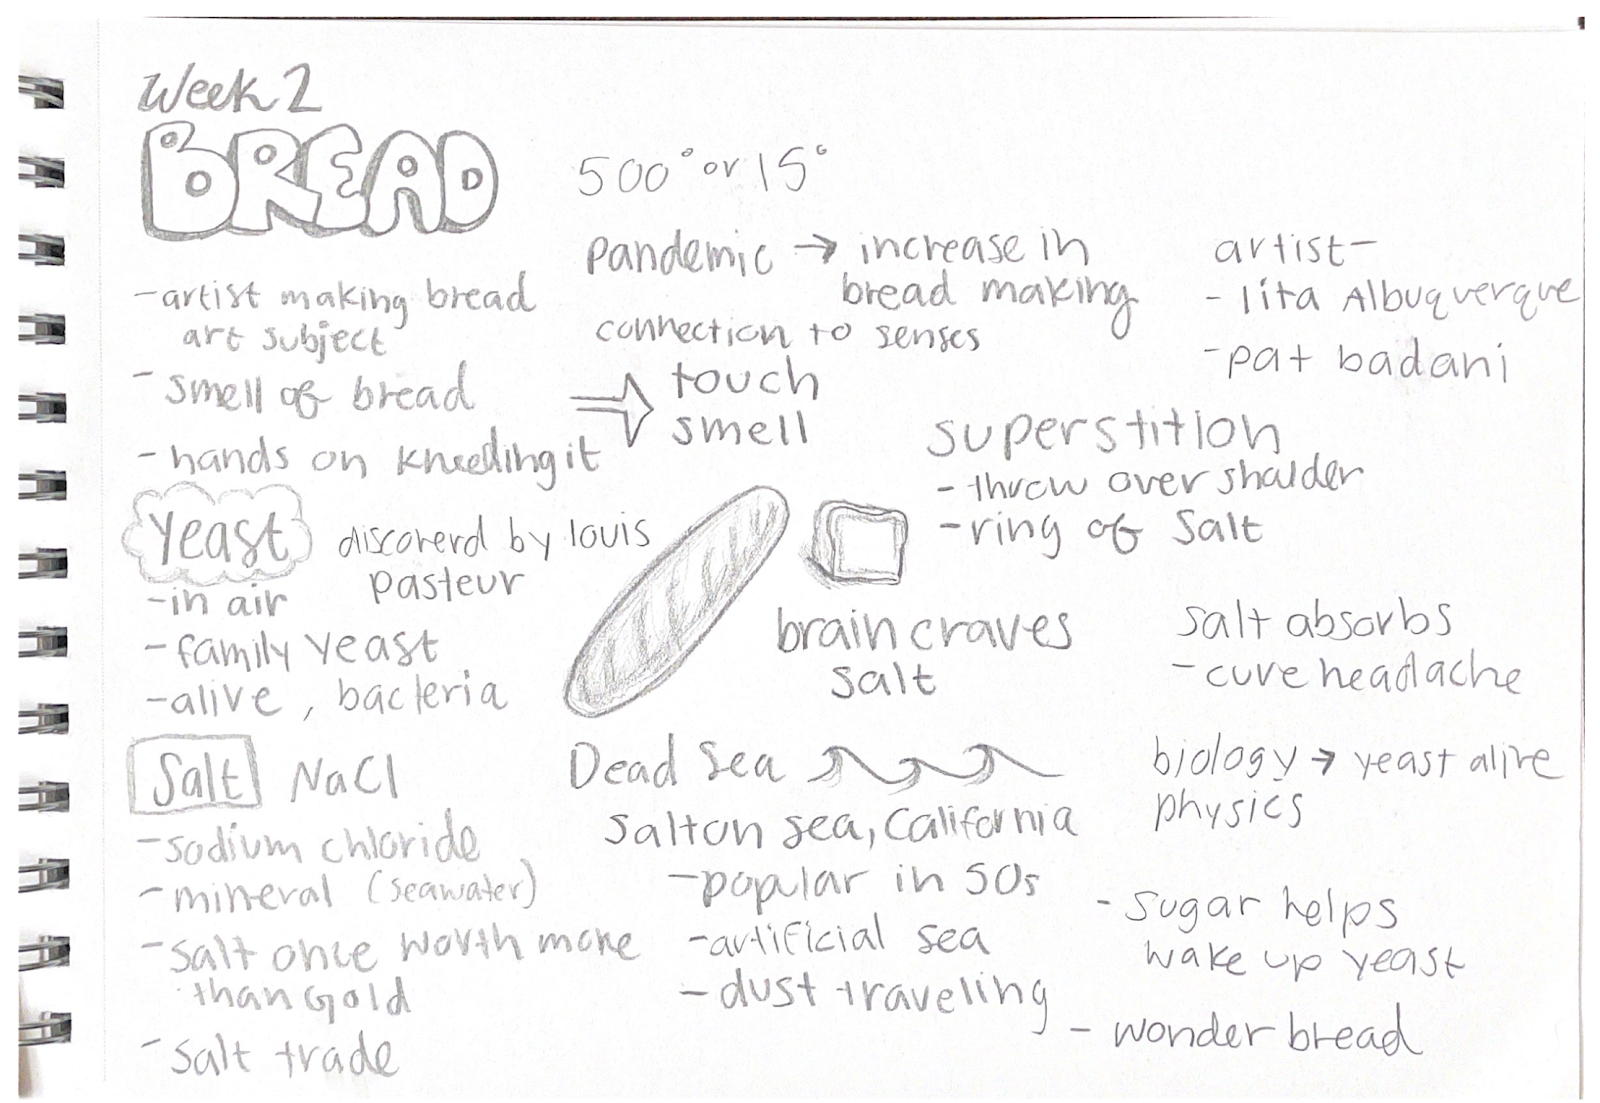 Week 2
BREAD
500° or 15°
- artist making bread
art subject
- smell of bread
- hands on kneeding it
pandemic → increase in
bread making
connection to senses
⇒ touch
smell
artist -
- lita Albuquerque
- pat badani
superstition
- throw over shalder
- ring of salt
yeast
discoverd by louis
pasteur
- in air
- family yeast
- alive, bacteria
brain craves
salt
salt absorbs
- cure headache
Salt NaCl
- sodium chloride
- mineral (seawater)
- salt once worth more
than Gold
- salt trade
Dead Sea
Salton sea, California
- popular in 50s
- artificial sea
- dust traveling
biology → yeast alive
physics
- sugar helps
wake up yeast
- wonder bread